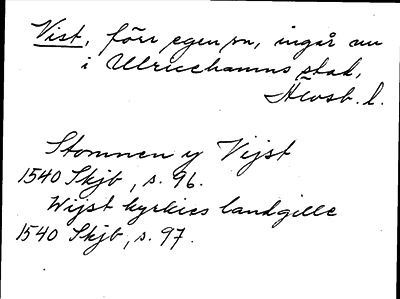 Vist, förr egen sn, ingår nu
i Ulricehamns stad,
Älvsb. l.
Stomnen y Vijst
1540 Skjb, s. 96.
Wijst kyrkies landgille
1540 Skjb, s. 97.